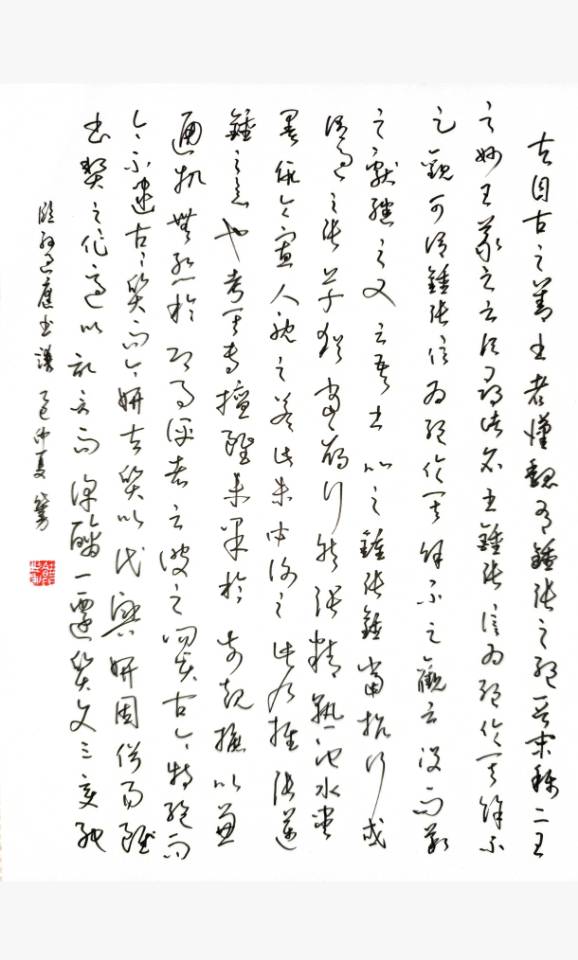 夫自古之善書者漢魏有鍾張之絕晉末稱二王
之妙王羲之云頃尋諸名書鍾張信為絕倫其餘不
足觀可謂鍾張信為絕倫其餘不足觀云沒而羲
之獻繼之又云吾書比之鍾張鍾當抗行或
謂過之張草猶當雁行然張精熟池水盡
墨假令寡人耽之若此未必謝之此乃推張邁
鍾之意也考其專擅雖未果於前規摭以兼
通故無慚於即事評者云彼之四賢古今特絕而
今不逮古古質而今妍夫質以代興妍因俗易雖
書契之作適以記言而淳醨一遷質文三變馳
臨孫過庭書譜 乙巳仲夏